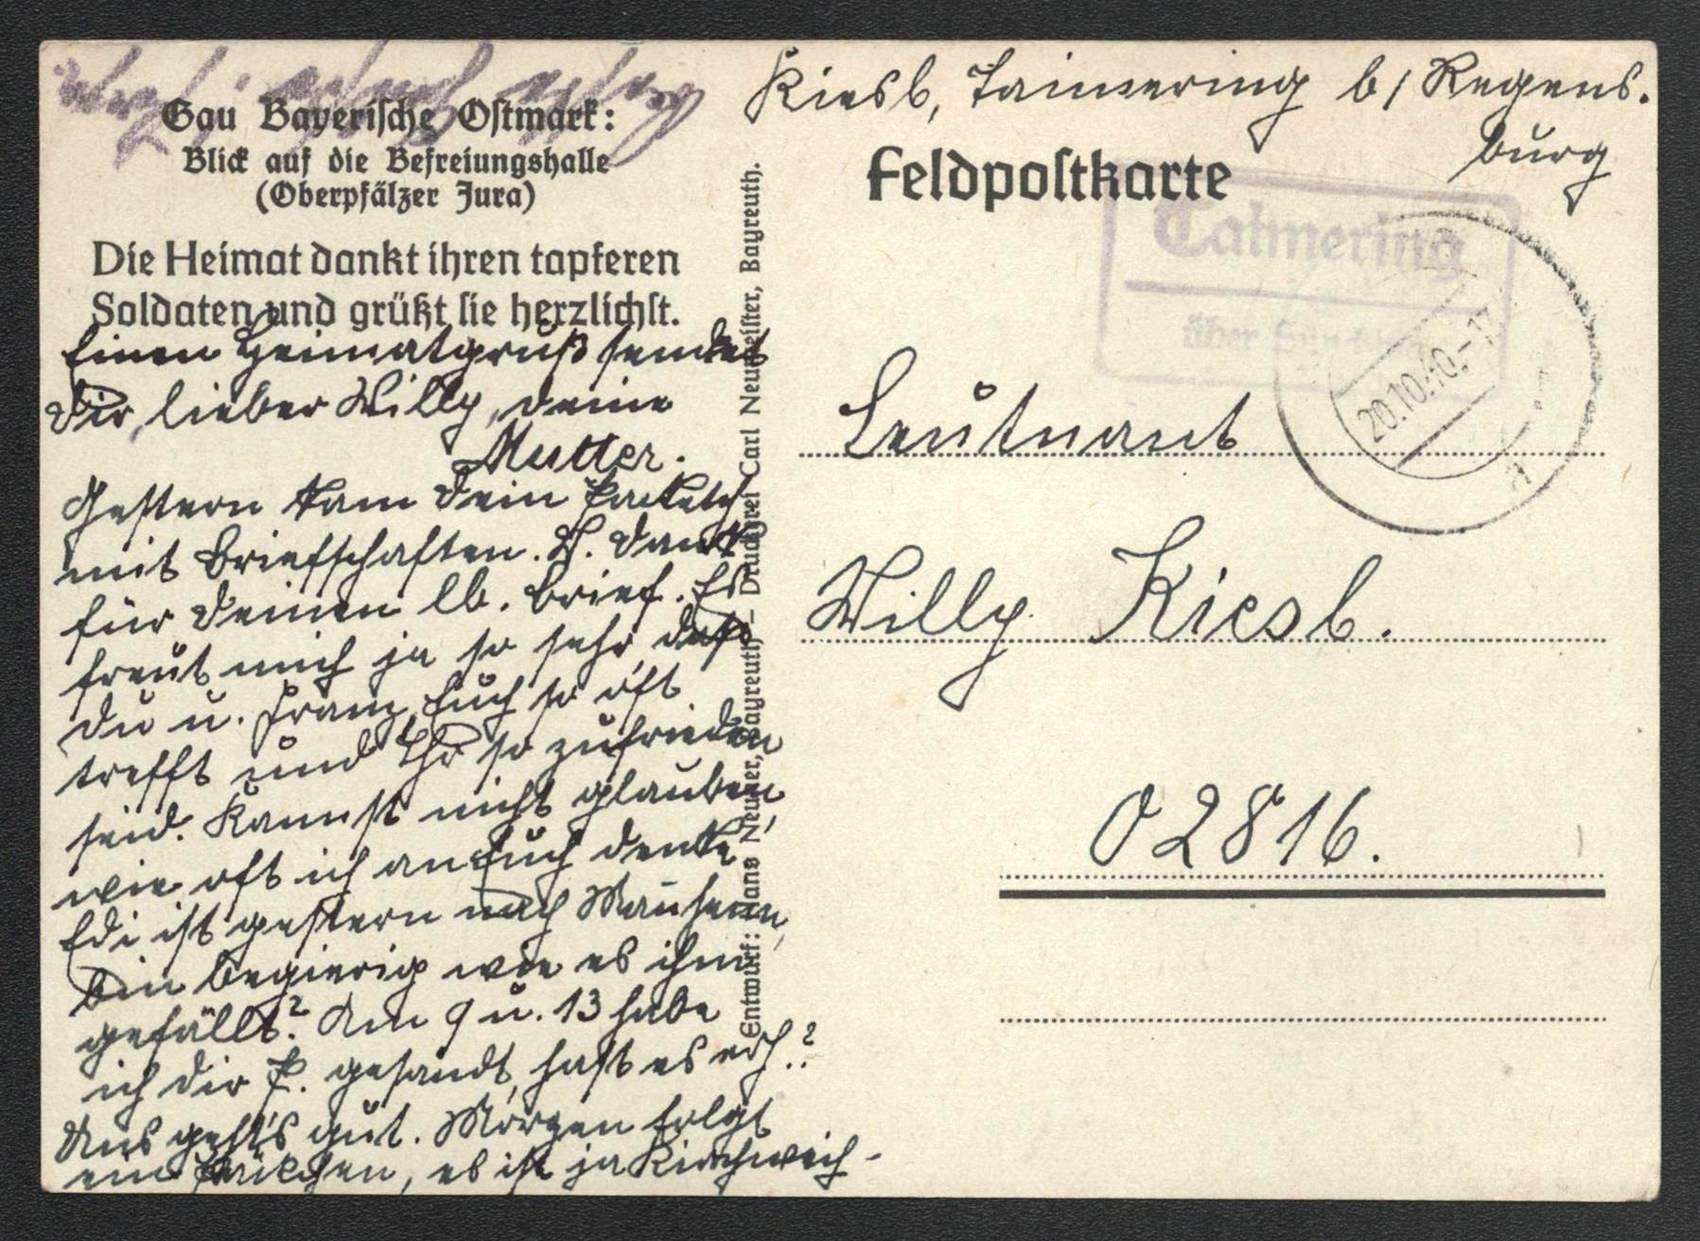 Gau Bayerische Ostmark:
Blick auf die Befreiungshalle
(Oberpfälzer Jura)
Die Heimat dankt ihren tapferen
Soldaten und grüßt sie herzlichst.
Einen Heimatgruß sendet
Dir, lieber Willy, deine
Mutter.
Gestern kam Dein
mit Briefschaften. H. Dank
für Deinen lb. Brief. Es
freut mich ja so sehr, daß
Du u. Franz Euch so oft
trefft und Ihr so zufrieden
seid. Kannst nicht glauben,
wie oft ich an Euch denke.
Edi ist gestern nach
bin begierig wie es ihm
gefällt? Am 9 u. 13 habe
ich dir P. gesandt, hast es erh.?
Uns geht's gut. Morgen folgt
ein, es ist ja Kirchweih-
Entwurf: Hans Neuner, Bayreuth – Druckerei Carl Neumeister, Bayreuth.
Kiesl, Taimering b/ Regens.
burg
Feldpostkarte
Taimering
über
20.10.40.-17
a
Leutnant
Willy Kiesl.
02816.